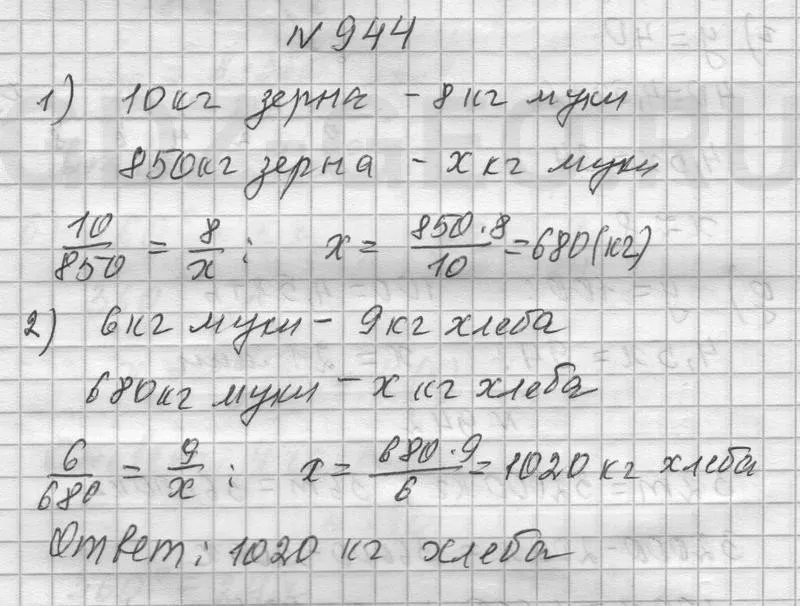 № 944
1) 10 кг зерна - 8 кг муки
850 кг зерна - x кг муки
10/850 = 8/x; x = 850·8/10 = 680 (кг)
2) 6 кг муки - 9 кг хлеба
680 кг муки - x кг хлеба
6/680 = 9/x; x = 680·9/6 = 1020 кг хлеба
Ответ: 1020 кг хлеба